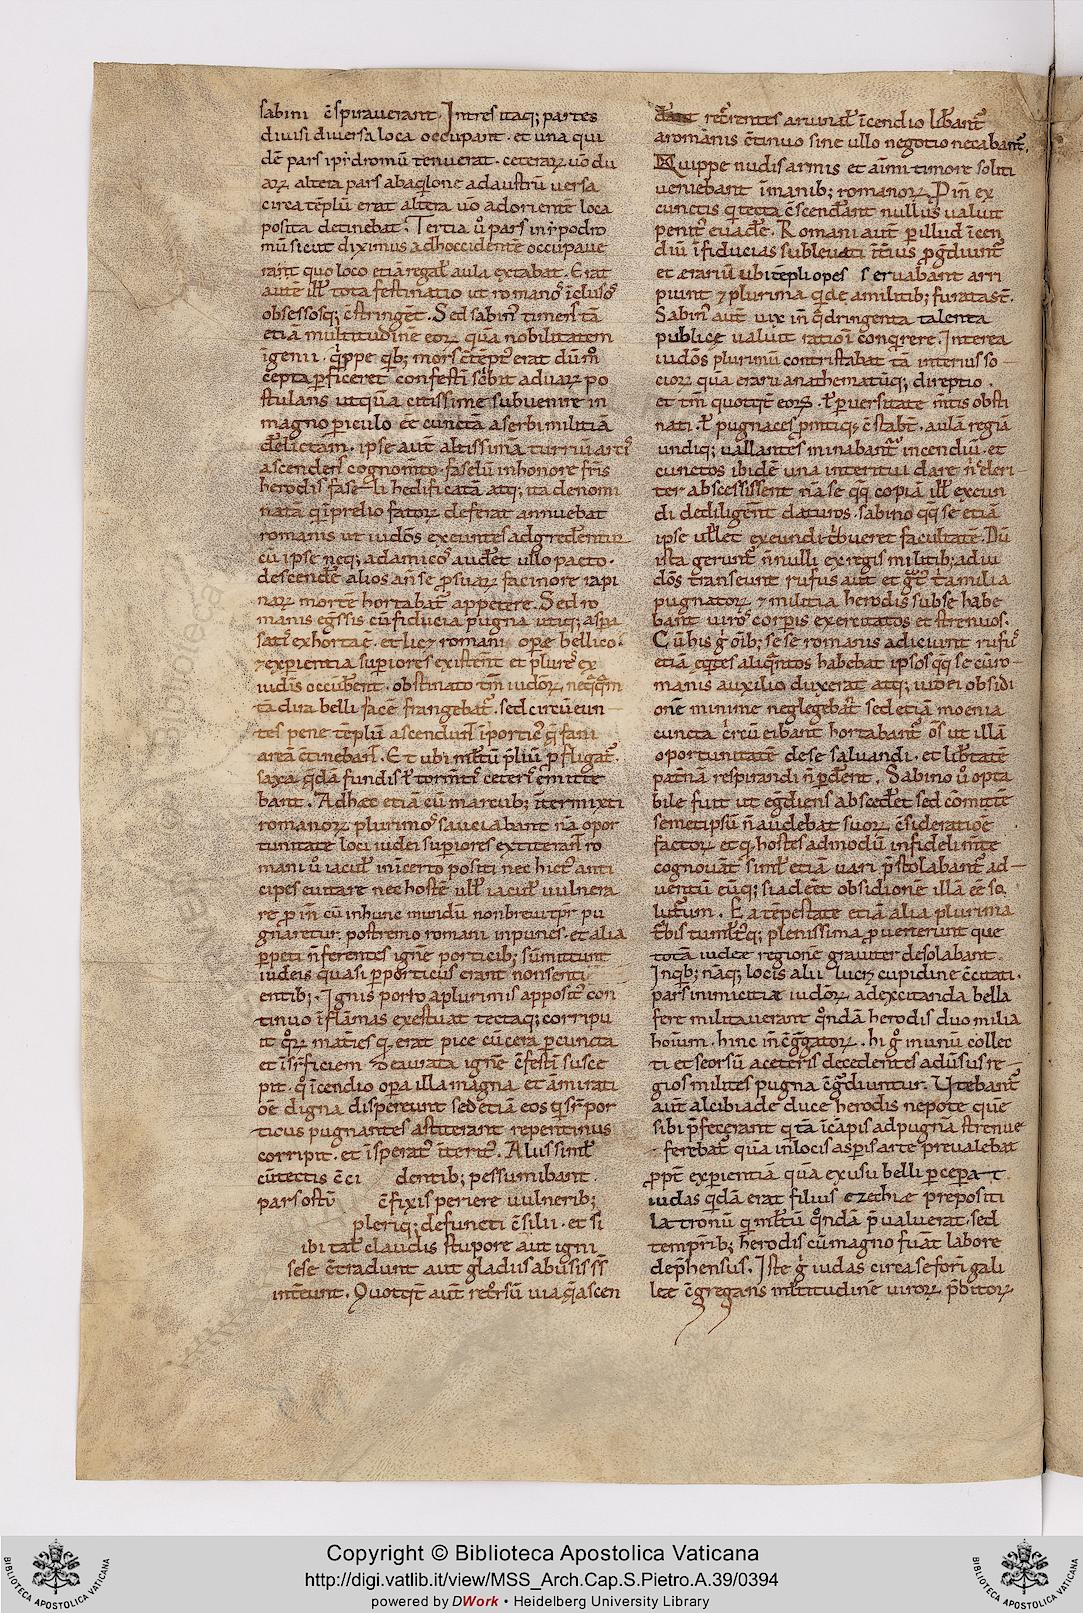 sabini c̄spiraverant. Intres itaq; partes
divisi diversa loca occupant. et una qui
dē pars ipi'dromū tenuerat. ceterarꝝ vō du
arꝝ altera pars abaq'lone adaustrū versa
circa tēplū erat altera vō adoriente loca
posita detinebat. Tertia ů pars in ipodro
mū sicut diximus adhoccidentē occupave
rant quo loco etiā regal' aula extabat. Erat
autē ill' tota festinatio ut romanos īclusos
obsessosq; c̄stringer̄. Sed sabin' timens tā
etiā multitudinē eorꝝ quā nobilitatem
īgenii
cepta p̄ficeret confestī sc'bit ad varꝝ po
stulans utquā citissime subvenire in
magno piculo eē cunctā
ipse aut̄ altissimā turriū arcis
ascendens cognomto faselū inhonore fr̄is
herodis fase li hedificatā atq; ita denomi
natā annuebat
romanis ut iudōs excuntes adgrederentur
cū ipse neq; adamicos auder̄ ullo pacto.
descendere alios an̄ se
narꝝ morte hortabat' appetere. Sed ro
manis eg̃ssis cū fiducia pugna utiq; aspa
romani ope bellico
⁊ expientia supiores existent et plures ex
iudeis occūbent. obstinato tm̄ iudōrꝝ
tā dira belli facie frangebat'. sed circūeun
tes pene tēplū ascenduñ īportic' q̄ fani
areā c̄tinebañ. Et ubi
saxa q'dā fundis
bant. Adhęc etiā cū
romanorꝝ plurimos sauciabant nā opor
tunitate loci iudei supiores extiterañ ro
mani ů iacul' inīcerto positi nec hict' anti
cipes evitare nec hostē ull' iacul' vulnera
re p in̄ cū inhunc mundū nonbrevi tp̄r pu
gnaretur. postremo romani inpunes et alia
p̄peti n̄ ferentes ignē porticib; sūmittunt
iudeis quasi p porticus erant nonsenti
entib;. Ignis porro aplurimis apposit' con
tinuo īflāmas exestuat tectaq; corripu
it qm̄ maties q̄ erat pice cū cera pcuncta
et deaurata ignē c̄festī susce
pit. q' īcendio opa illa magna et āmirati
oē digna dispereunt sed etiā eos q' sr̄ por
ticus pugnantes astiterant repentinus
corripit. et īsperat' īterit'. Alus simł
cūtectis c̄ci dentib; pessumibant
pars c̄fixis periere vulnerib;
pleriq; defuncti c̄silii. et si
ibi tal' cladis stupore aut igni
sese c̄tradunt aut gladiis abusis s̄s̄
intereunt. Quotq̄t aut̄ retr'sū via q̄ ascen
derant recurrentes īcendio lib'ant'
aromanis c̄tinuo sine ullo negotio necabant'.
Quippe nudis armis et aīmi timore soliti
veniebant īmanib; romanorꝝ. P in̄ ex
cunctis q' tecta c̄scenderant nullus valuit
penit' evadere. Romani aut̄ pillud īcen
diū īfiducias sublevati p̄g̃diunt'
et ærariū ubi tēpli opes servabant arri
piunt ⁊ plurima q'dē amilitib; furata st̄.
Sabin' aut̄ vix in q̄dringenta talenta
publice valuit ratioī conq'rere. Interea
iudōs plurimū contristabat tā interius so
ciorꝝ quā erarii anathematūq; direptio.
et tm̄ quotq̄t eorꝝ t' pversitate mn̄tis obsti
nati. t' pugnaces c̄stabt̄. aulā regiā
undiq; vallantes minabant' incendiū. et
cunctos ibidē una interitui dare n̄ deri
ter abscessissent nā se q̄q̄ copiā ill' exeun
di dediligent daturos. sabino q̄q̄ se etiā
ipse vell' exeundi t'bueret facultatē. Dū
ista gerunt' n̄nulli ex regis militib; ad iu
dōs transeunt rufus aut̄ et
pugnatorꝝ ⁊ militia herodis subse habe
bant viros corpis exercitatos et strenuos.
Cū his g̊ oīb; sese romanis adiciunt rufus
etiā eq'tes aliq̄ntos habebat ipsos q̄q̄ se cū ro
manis auxilio duxerat atq; iudei obsidi
one minime neglegebant sed etiā moenia
cuncta circū eibant hortabant' oms ut illā
oportunitatē de se salvandi. et lib'tatē
patriā respirandi n̄ p̄derent. Sabino ů opta
bile fuit ut eg̃diens absceder̄ sed comittē
semetipsū n̄ audebat suorꝝ c̄sideratioē
factorꝝ et q̄ hostes admodū infideli mte
cognovat simł etiā vari p̄stolabant' ad
ventū eūq; si adēet obsidionē illā eē so
lut'um. Ea tēpestate etiā alia plurima
plenissima pvenerunt que
totā iudee regionē graviter desolabant.
In q'b; nāq; locis alii lucri cupidine c̄citati.
pars inimicitiæ iudōrꝝ adexcitanda bella
fere militaverant q̄ndā herodis duo milia
hoium. hinc in c̄g̃gatorꝝ. hi g̊ in unū collec
ti et seorsū aceteris decedentes adv̄sus re
gios milites pugna c̄g̃diuntur. Utebant'
aut̄ alcibiade duce herodis nepote que
sibi p̄fecerant q' tā īcapis adpugnā strenue
ferebat' quā in locis aspis arte prevalebat
ppt̄ expientiā quā exusu belli pcepat
iudas q'dā erat filius ezechiæ prepositi
latronū q' mltū q̄ndā p̄valuerat. sed
temprib; herodis cū magno fuat labore
dep̄hensus. Iste g̊ iudas circa seforī gali
leæ c̄gregans mltitudinē virorꝝ p̄bitorꝝ
Copyright © Biblioteca Apostolica Vaticana
http://digi.vatlib.it/view/MSS_Arch.Cap.S.Pietro.A.39/0394
powered by DWork • Heidelberg University Library
BIBLIOTECA APOSTOLICA VATICANA
BIBLIOTECA APOSTOLICA VATICANA